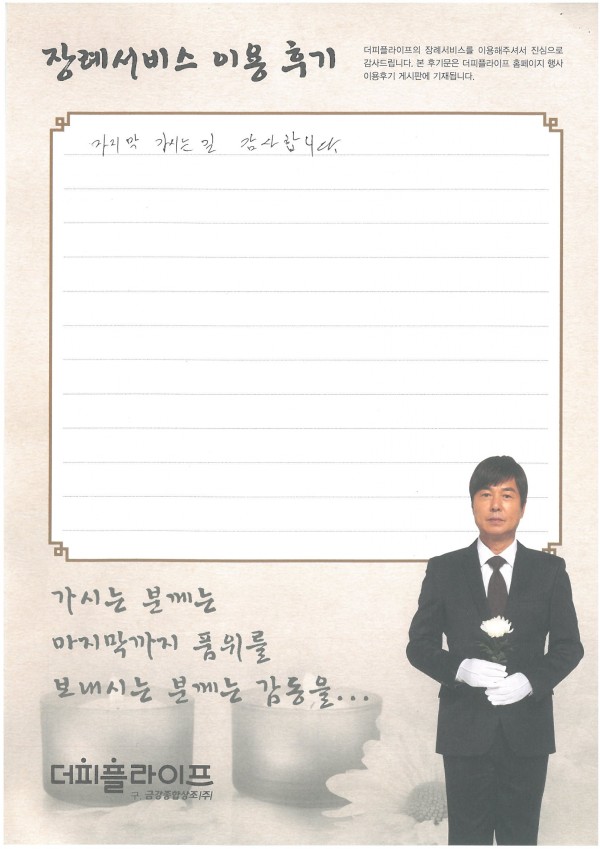 장례서비스 이용 후기
더피플라이프의 장례서비스를 이용해주셔서 진심으로
감사드립니다. 본 후기문은 더피플라이프 홈페이지 행사
이용후기 게시판에 기재됩니다.
마지막 가시는 길 감사합니다.
가시는 분께는
마지막까지 품위를
보내시는 분께는 감동을...
더피플라이프
구. 금강종합상조(주)